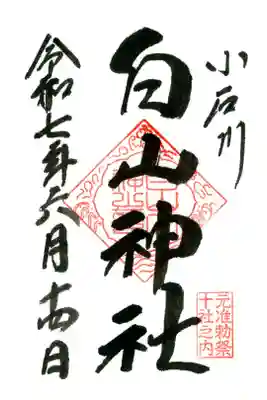 小石川
白山神社
元准勅祭
十社之内
令和七年六月十四日